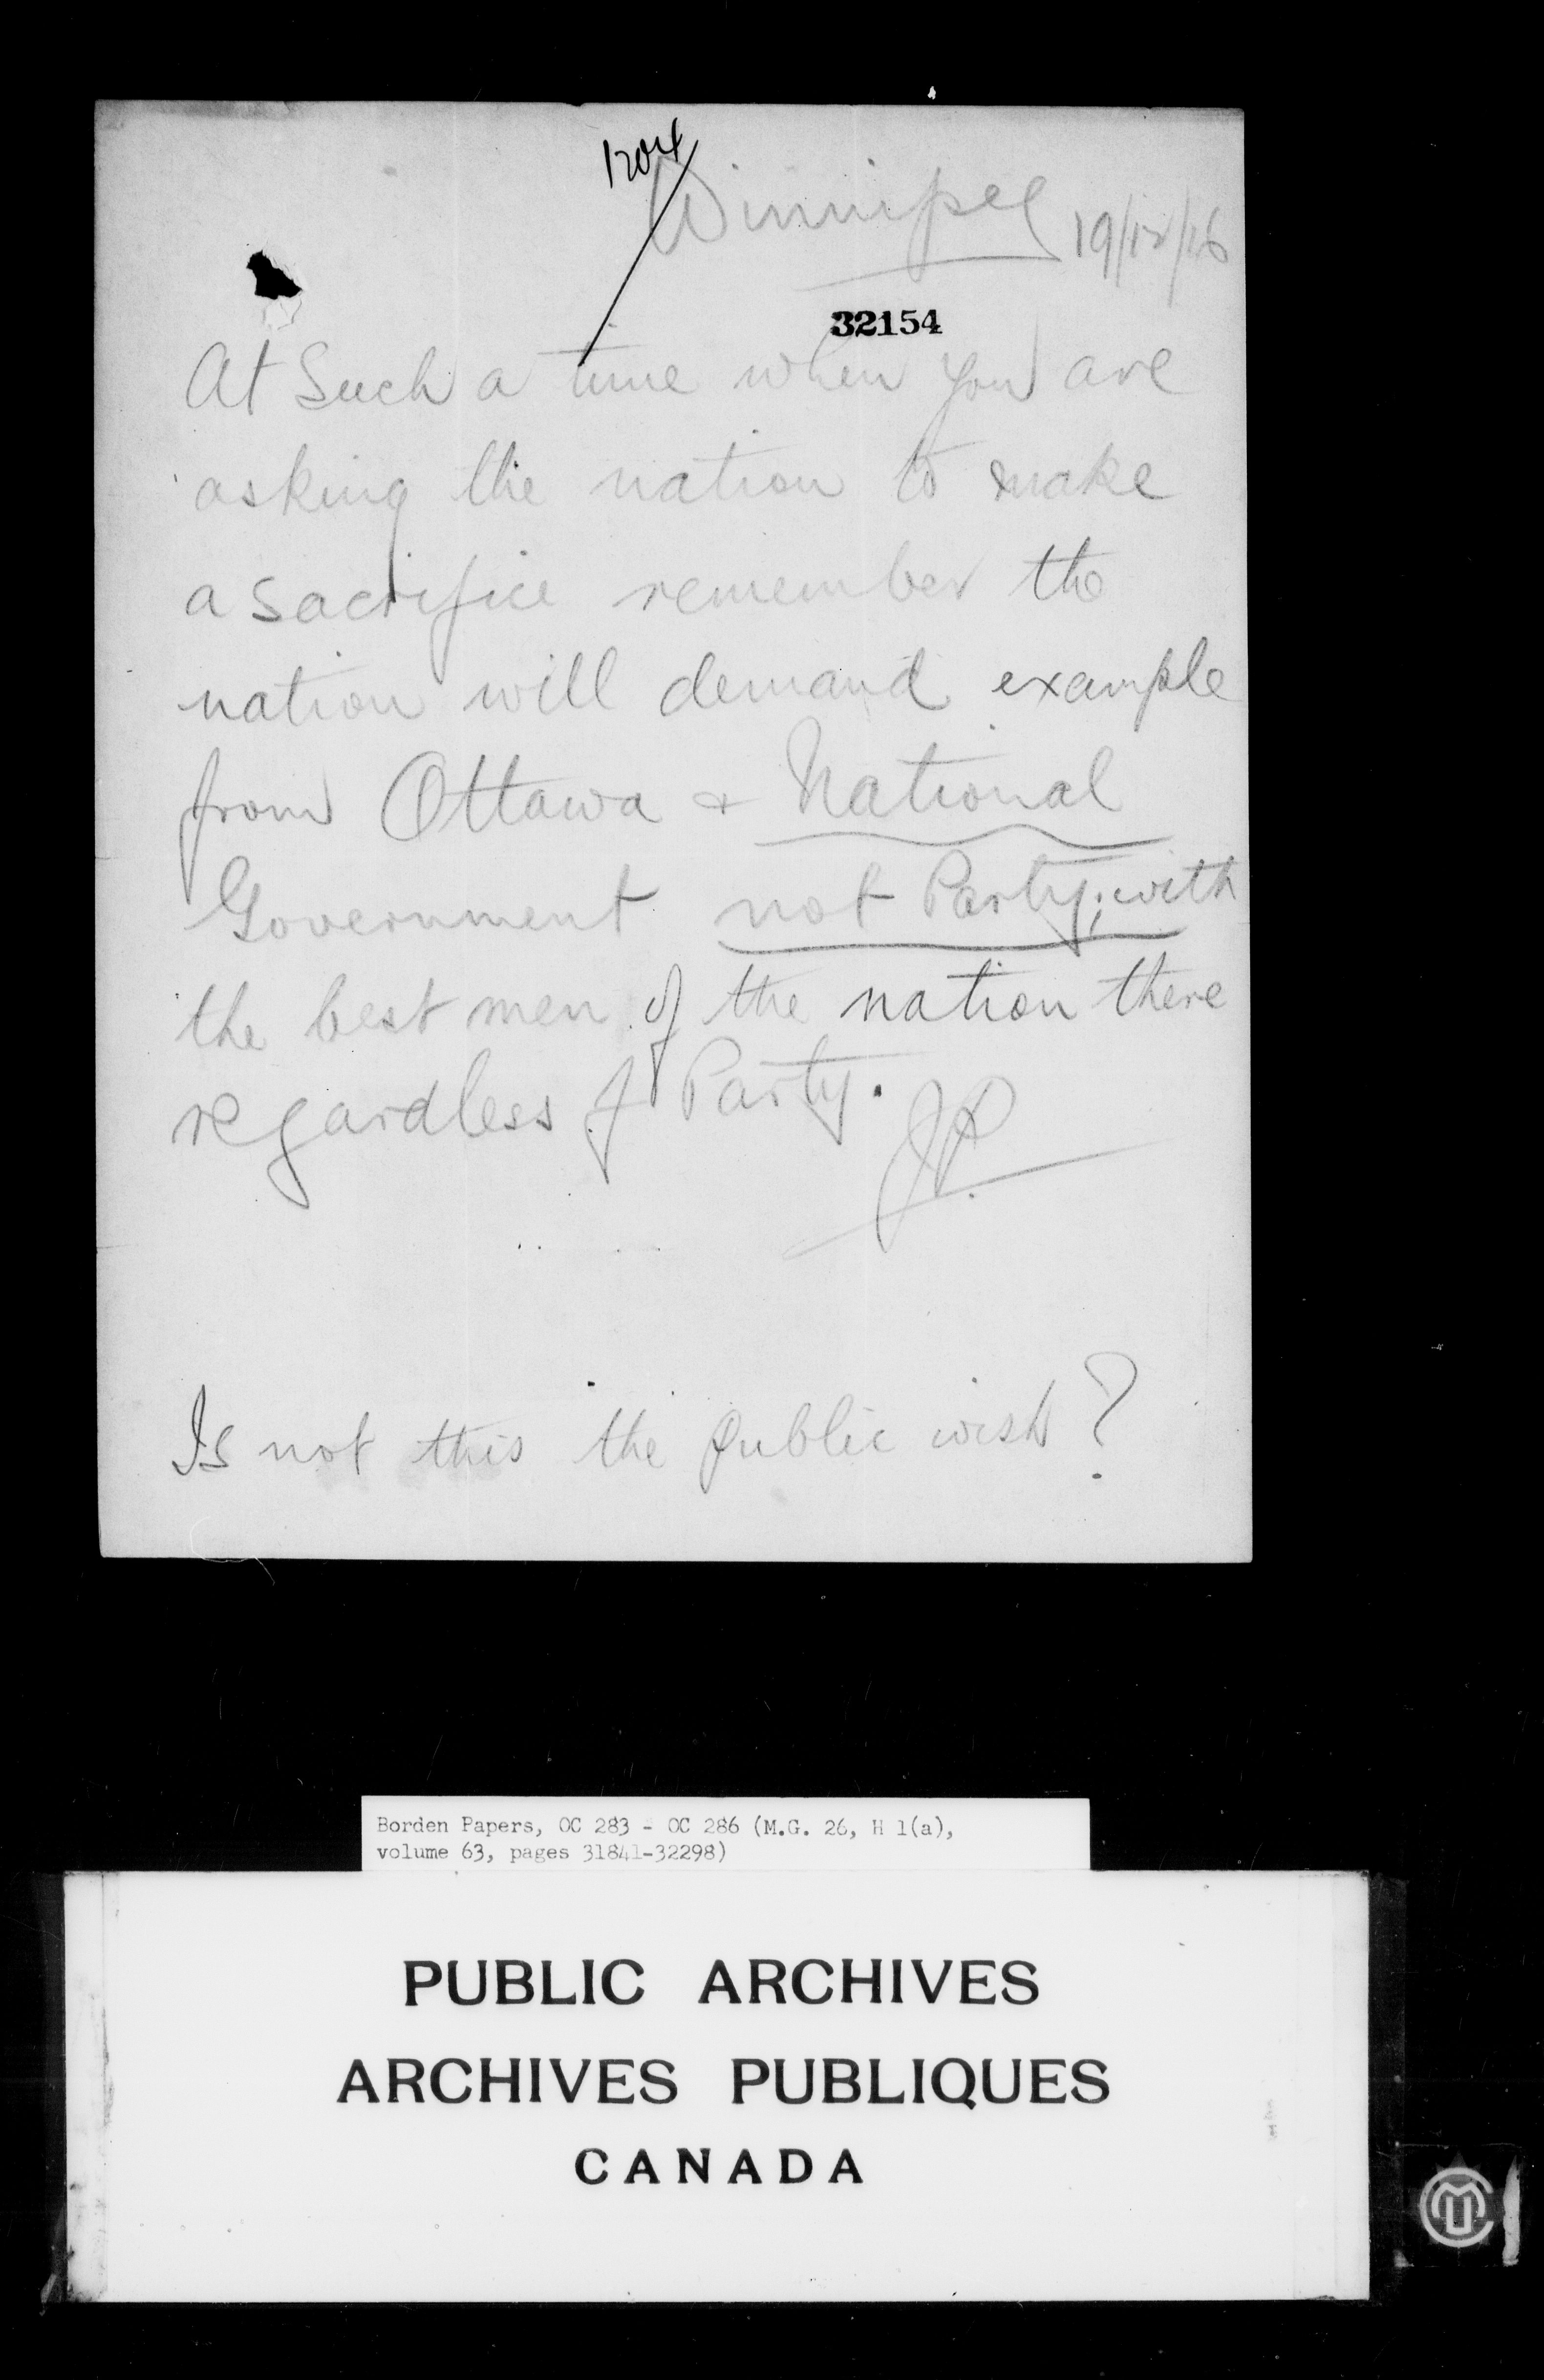 1204
Winnipeg 19/12/16
32154
At Such a time when you are
asking the nation to make
a sacrifice remember the
nation will demand example
from Ottawa + National
Government not Party; with
the best men of the nation there
regardless of Party.
JP.
Is not this the public wish?
Borden Papers, OC 283 - OC 286 (M.G. 26, H 1(a),
volume 63, pages 31841-32298)
PUBLIC ARCHIVES
ARCHIVES PUBLIQUES
CANADA